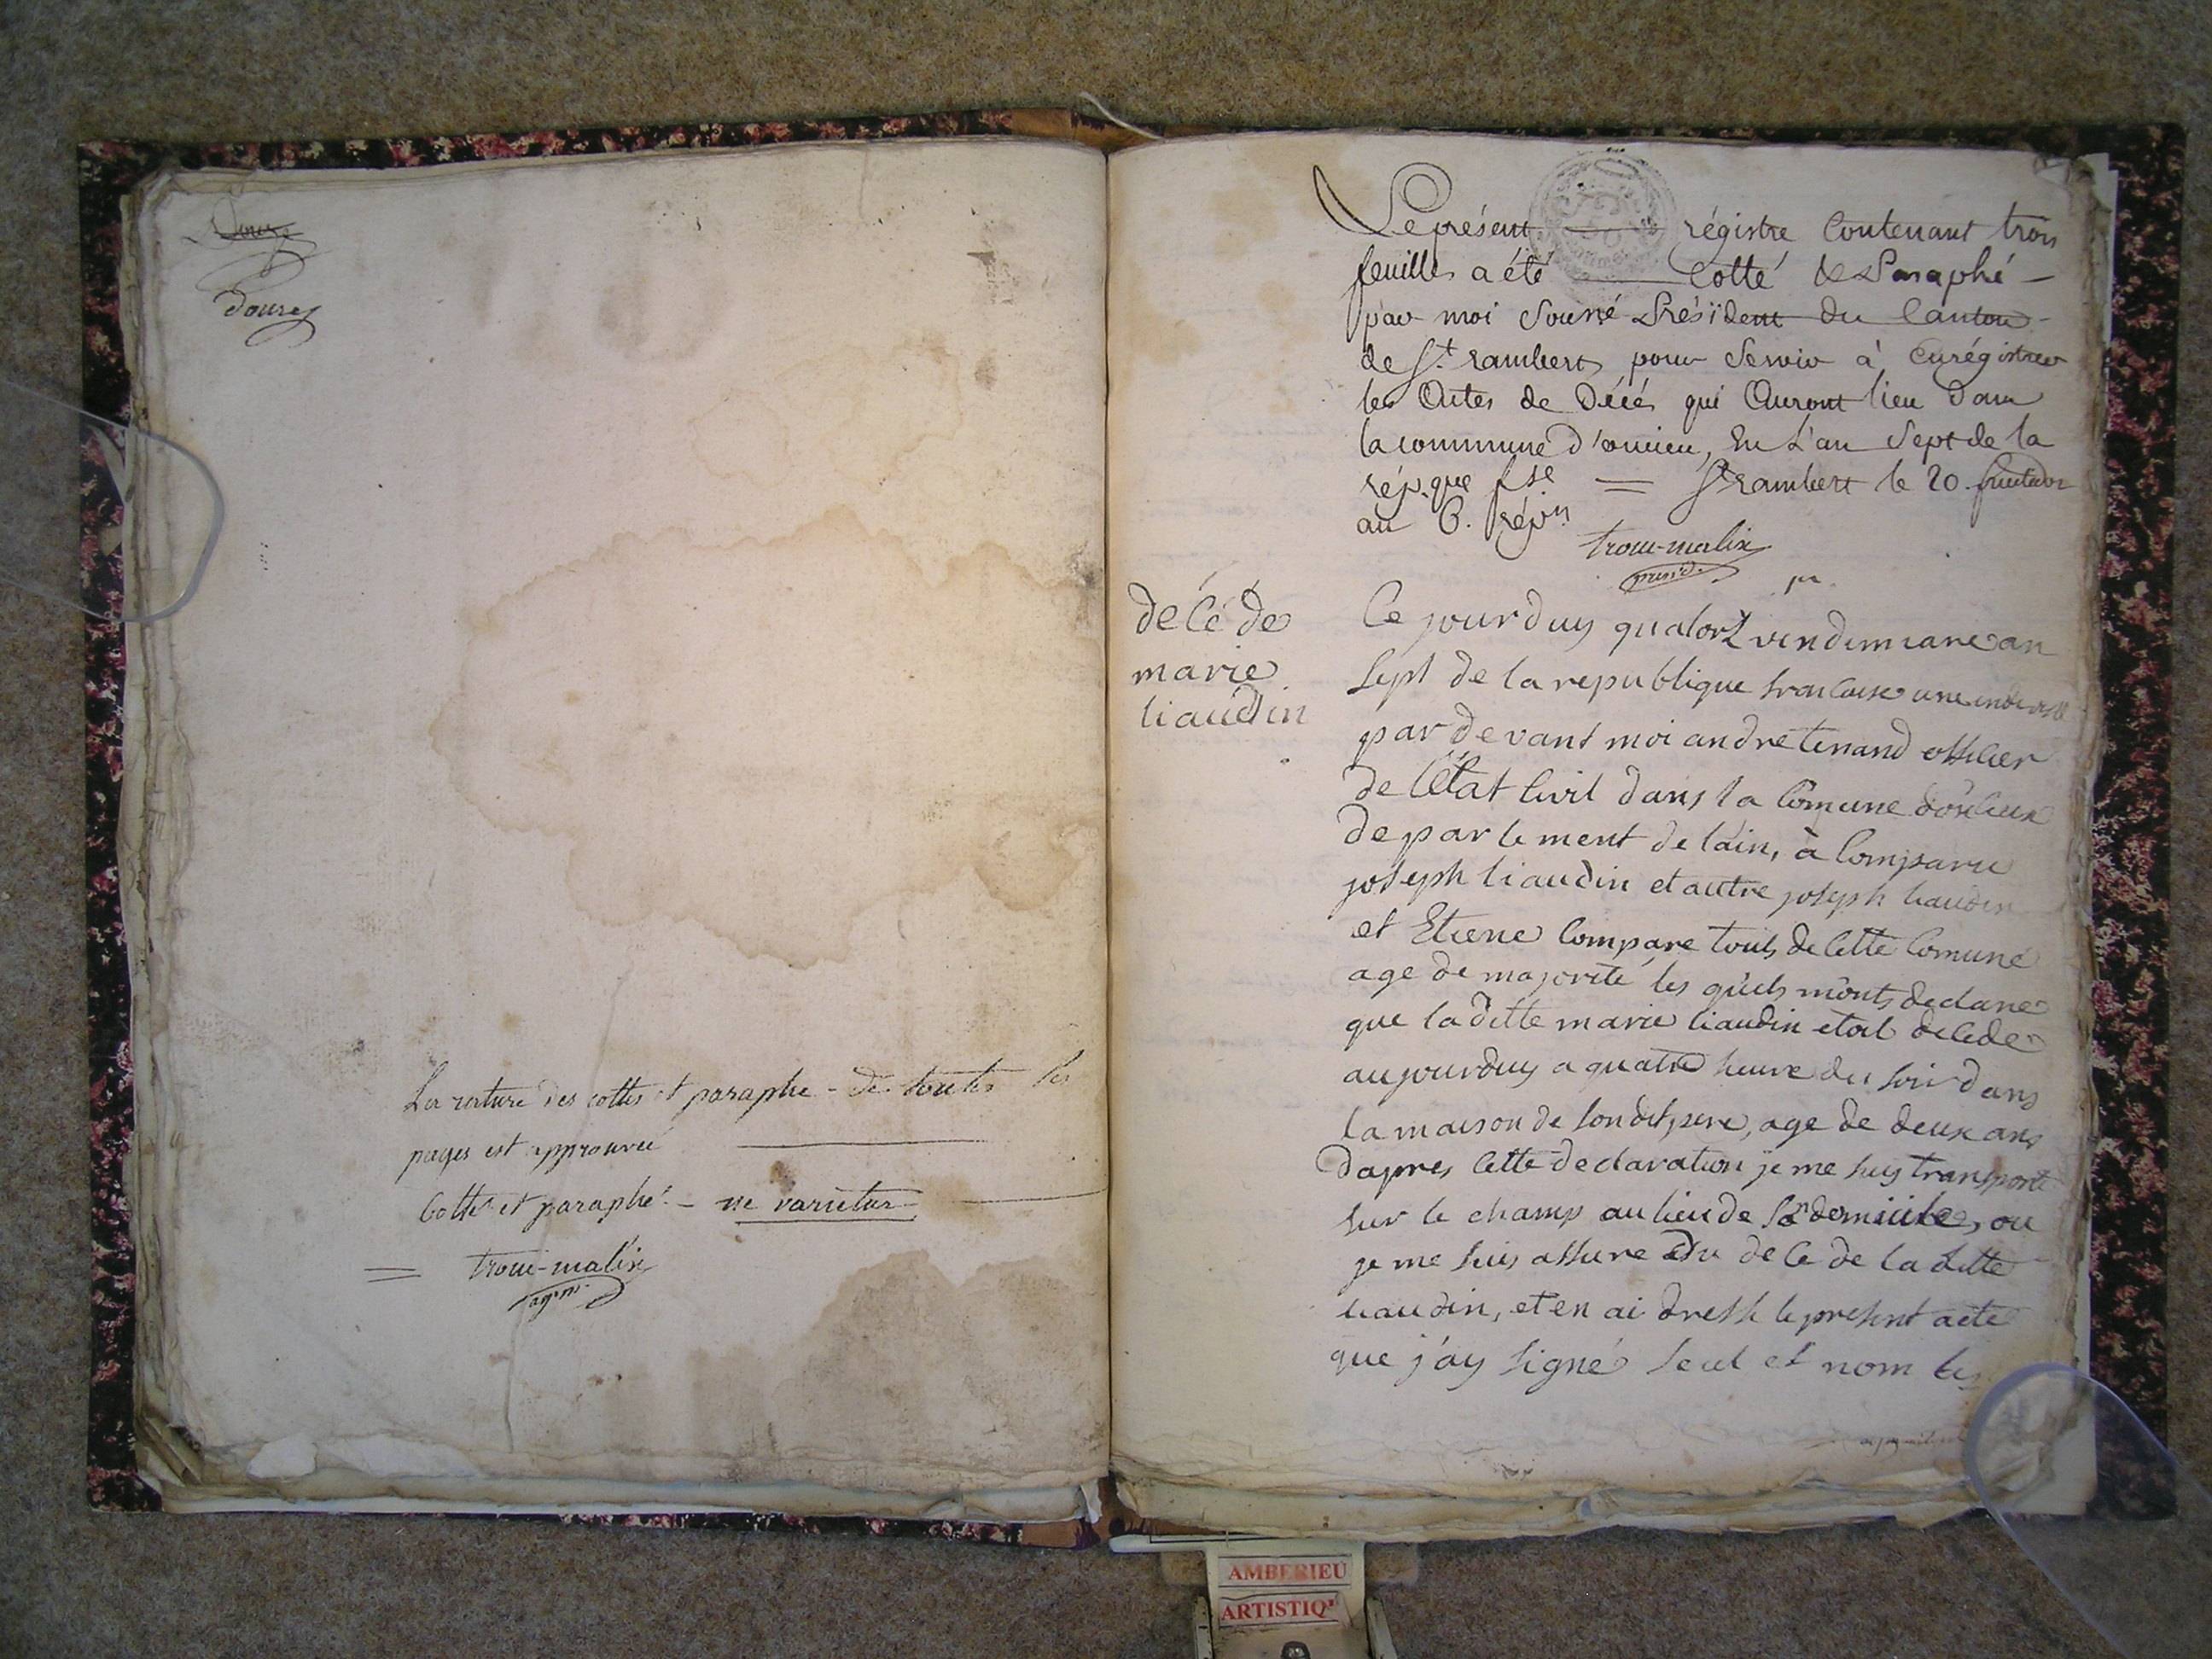 douze
La rature des cottes et paraphe - de toutes les
pages est approuvée
Cotté et paraphé - ne varietur
trocu-malix
Le présent régistre Contenant trois
feuilles a été Cotté & Paraphé
par moi Sousné Présïdent du Canton
de St. rambert, pour Servir à Enrégistrer
les Actes de Décés qui Auront lieu dans
la commune d'oncieu, En L'an Sept de la
rép.que fse = St rambert le 20. fructidor
an 6. rép.n
trocu-malix
présid.
déCé de
marie
liaudin
Ce jourduy quatorz vendemiare an
sept de la republique francaise une indivisible
par devant moi andre tenand officier
de l'État Civil dans la Comune d'oncieux
departement de lain, à Comparu
joseph liaudin et autre joseph liaudin
et Etiene Compare touts de Cette Comune
age de majorité les quels m'onts declare
que la ditte marie liaudin etoit decede
aujourduy a quatre heure du soir dans
la maison de son dit pere, age de deux ans
dapres Cette declaration je me suis transporte
sur le champ au lieu de son domicile, ou
je me suis assure du deCe de la ditte
liaudin, et en ai dresse le present acte
que j'ay signé seul et nom les
AMBERIEU
ARTISTIQ